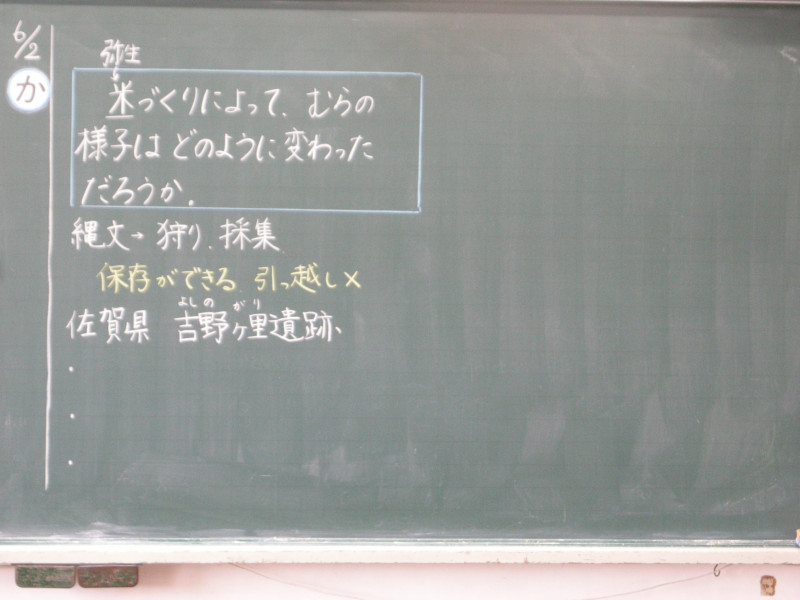 6/2
か
弥生
米づくりによって、むらの
様子はどのように変わった
だろうか。
縄文→狩り、採集
保存ができる 引っ越し×
よしのがり
佐賀県 吉野ヶ里遺跡
・
・
・